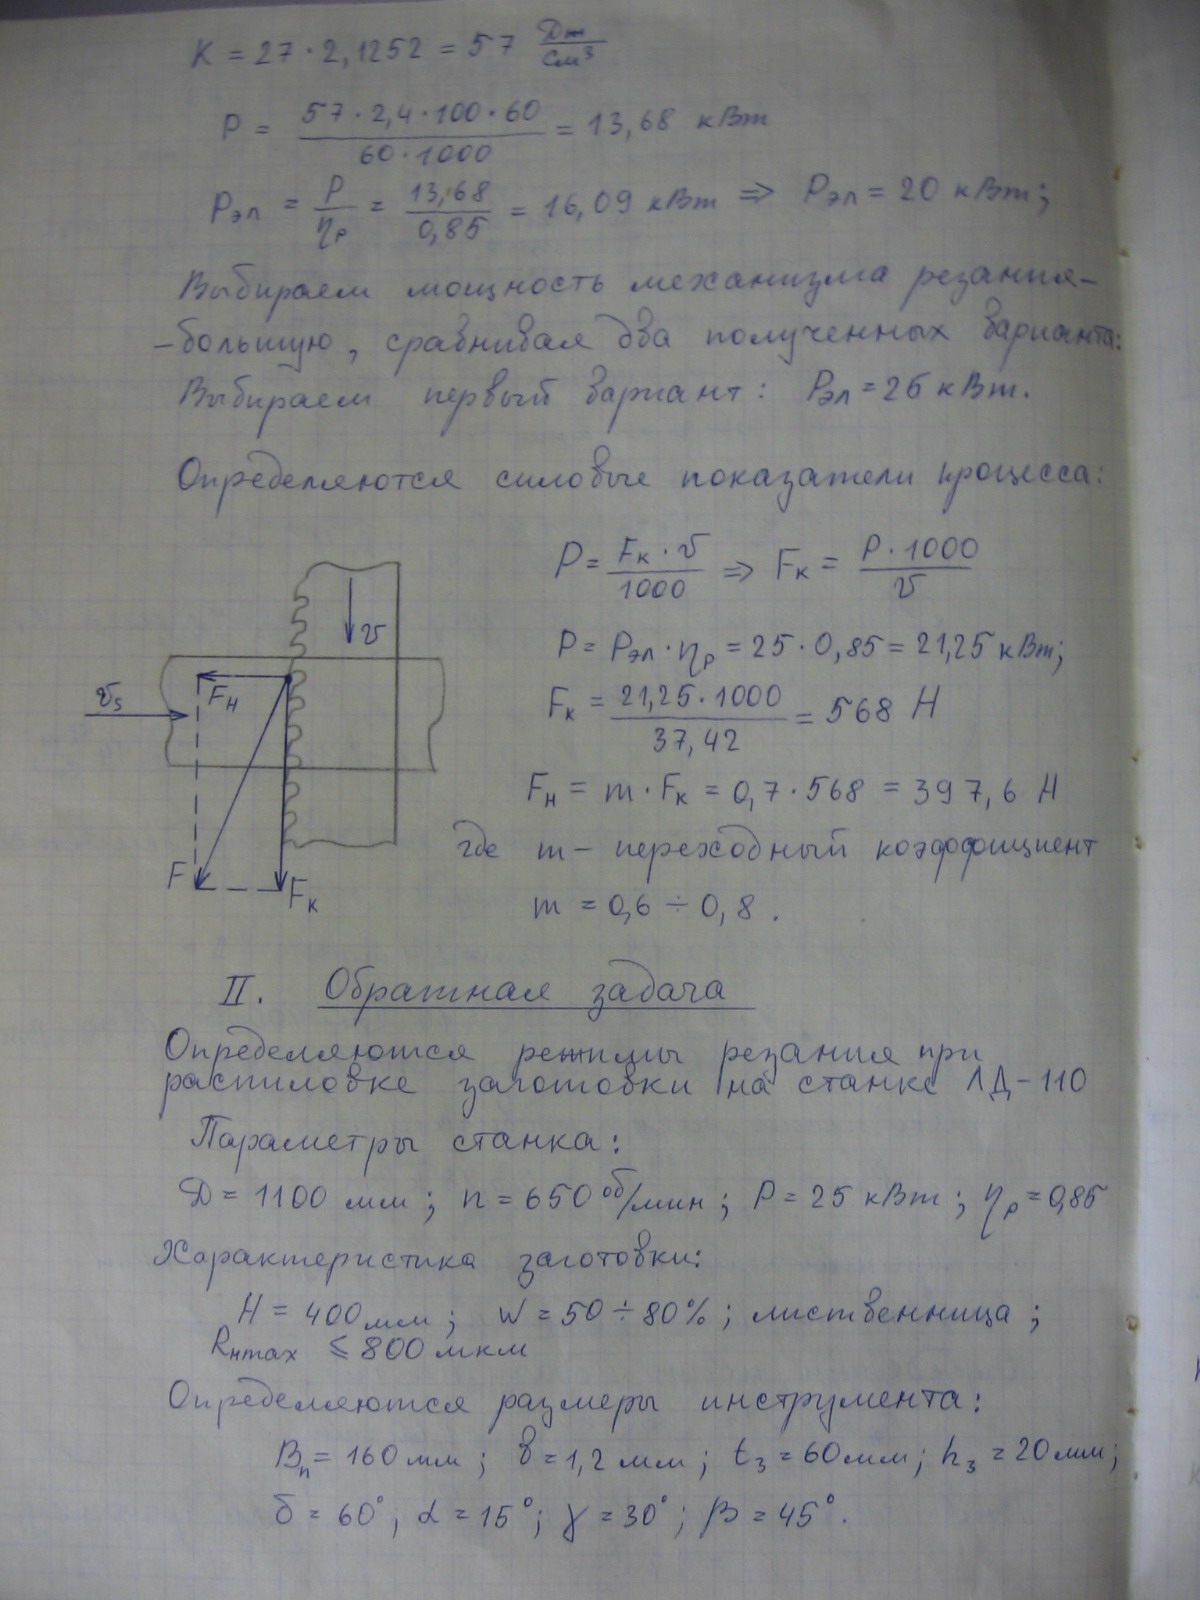 K = 27 · 2,1252 = 57 Дж/см³
P = (57 · 2,4 · 100 · 60)/(60 · 1000) = 13,68 кВт
Pэл = P/ηр = 13,68/0,85 = 16,09 кВт ⇒ Pэл = 20 кВт;
Выбираем мощность механизма резания-
-большую, сравнивая два полученных варианта:
Выбираем первый вариант: Pэл = 25 кВт.
Определяются силовые показатели процесса:
P = (Fк · v)/1000 ⇒ Fк = (P · 1000)/v
P = Pэл · ηр = 25 · 0,85 = 21,25 кВт;
Fк = (21,25 · 1000)/37,42 = 568 Н
Fн = m · Fк = 0,7 · 568 = 397,6 Н
где m – переходный коэффициент
m = 0,6 ÷ 0,8.
v
vs
Fн
F
Fк
II. Обратная задача
Определяются режимы резания при
распиловке заготовки на станке ЛД-110
Параметры станка:
D = 1100 мм; n = 650 об/мин; P = 25 кВт; ηр = 0,85
Характеристика заготовки:
H = 400 мм; W = 50 ÷ 80%; лиственница;
Rнmax ≤ 800 мкм
Определяются размеры инструмента:
Bп = 160 мм; b = 1,2 мм; tз = 60 мм; hз = 20 мм;
δ = 60°; α = 15°; γ = 30°; β = 45°.